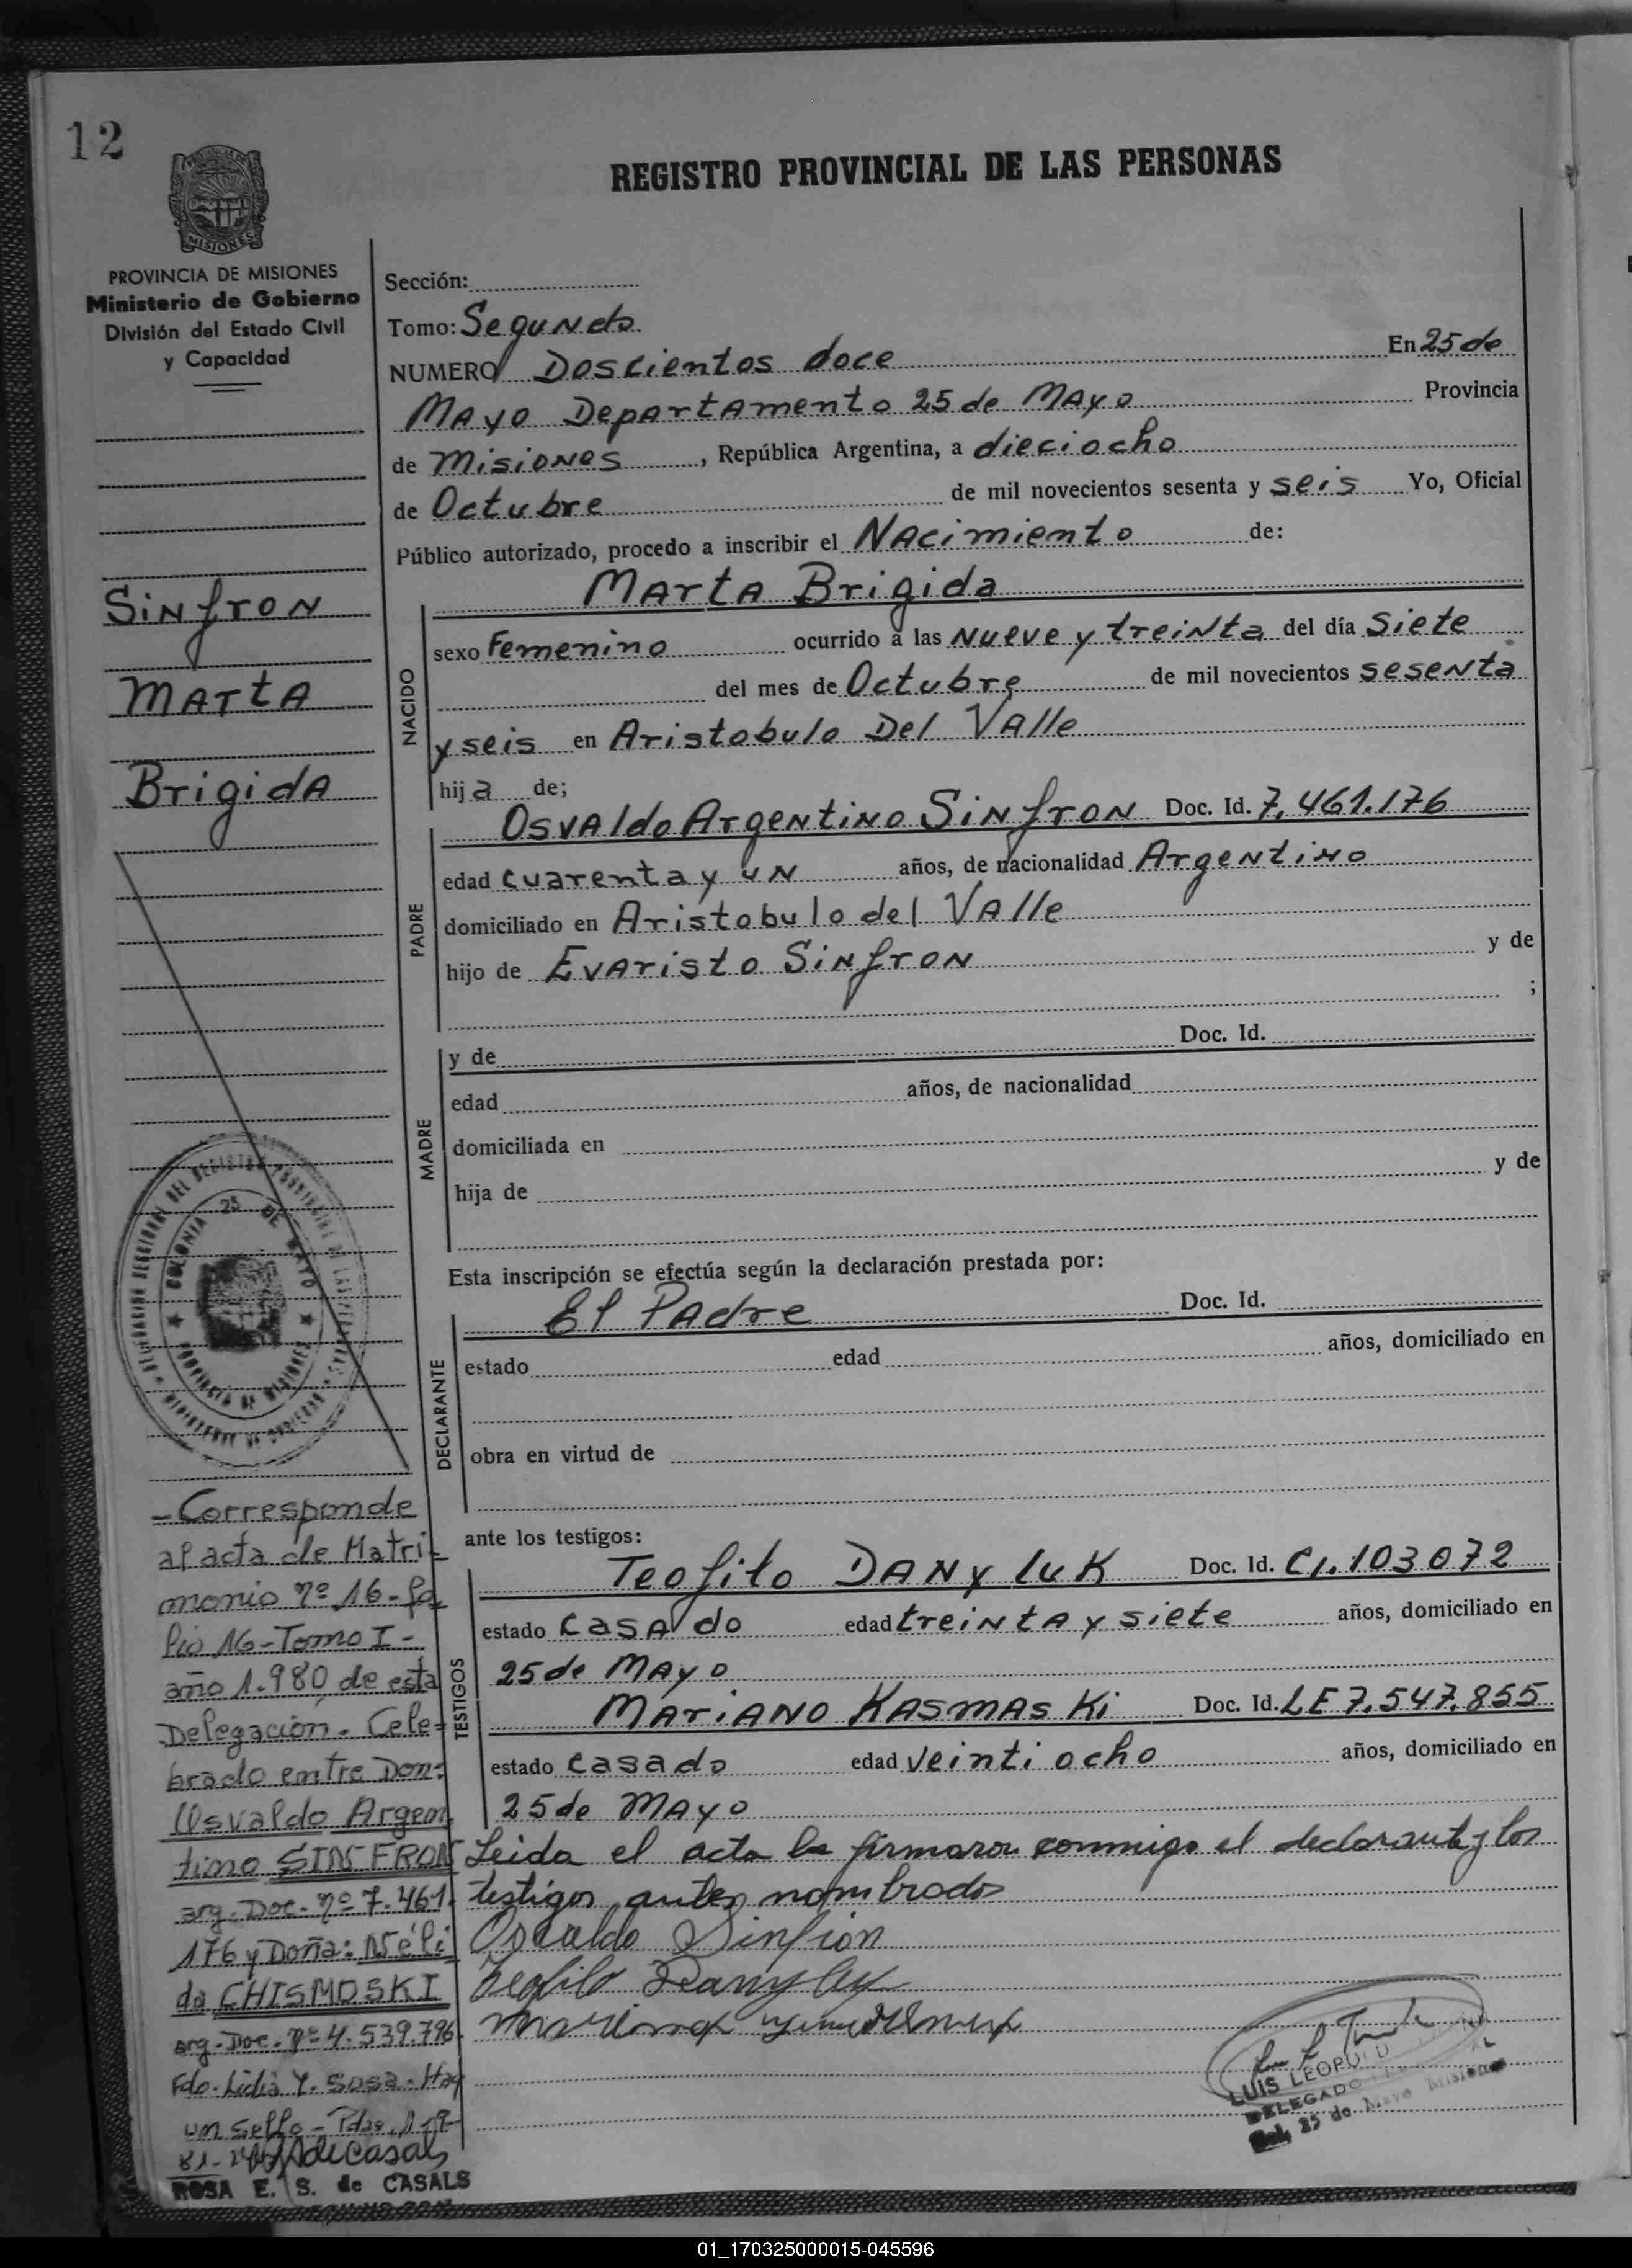 12
REGISTRO PROVINCIAL DE LAS PERSONAS
MISIONES
PROVINCIA DE MISIONES
Ministerio de Gobierno
División del Estado Civil
y Capacidad
Sinfron
Marta
Brigida
Sección:
Tomo: Segundo
NUMERO Doscientos doce En 25 de
Mayo Departamento 25 de Mayo Provincia
de Misiones, República Argentina, a dieciocho
de Octubre de mil novecientos sesenta y seis Yo, Oficial
Público autorizado, procedo a inscribir el Nacimiento de:
NACIDO
Marta Brigida
sexo Femenino ocurrido a las Nueve y treinta del día Siete
del mes de Octubre de mil novecientos sesenta
y seis en Aristobulo Del Valle
hija de;
PADRE
Osvaldo Argentino Sinfron Doc. Id. 7.461.176
edad cuarenta y un años, de nacionalidad Argentino
domiciliado en Aristobulo del Valle
hijo de Evaristo Sinfron y de
;
MADRE
y de Doc. Id.
edad años, de nacionalidad
domiciliada en
hija de y de
Esta inscripción se efectúa según la declaración prestada por:
DECLARANTE
El Padre Doc. Id.
estado edad años, domiciliado en
obra en virtud de
ante los testigos:
TESTIGOS
Teofilo DANyluK Doc. Id. CI. 103072
estado casado edad treinta y siete años, domiciliado en
25 de Mayo
Mariano Kasmaski Doc. Id. LE 7.547.855
estado casado edad veinti ocho años, domiciliado en
25 de Mayo
Leida el acta la firmaron conmigo el declarante y los
testigos antes nombrados
Osvaldo Sinfron
Teofilo Danyluk
COLONIA 25 DE MAYO
PROVINCIA DE MISIONES
-Corresponde
al acta de Matri-
monio nº 16-fo
lio 16-Tomo I-
año 1.980 de esta
Delegación. Cele-
brado entre Don:
Osvaldo Argen
tino SINFRON
arg. Doc. nº 7.461.
176 y Doña: Néli
da CHISMOSKI
arg. Doc. nº 4.539.796.
Fdo. Lidia Y. Sosa. Hay
un sello - Pdas,
ROSA E. S. de CASALS
LUIS LEOPOLD
DELEGADO
Col. 25 de Mayo Misiones
01_170325000015-045596